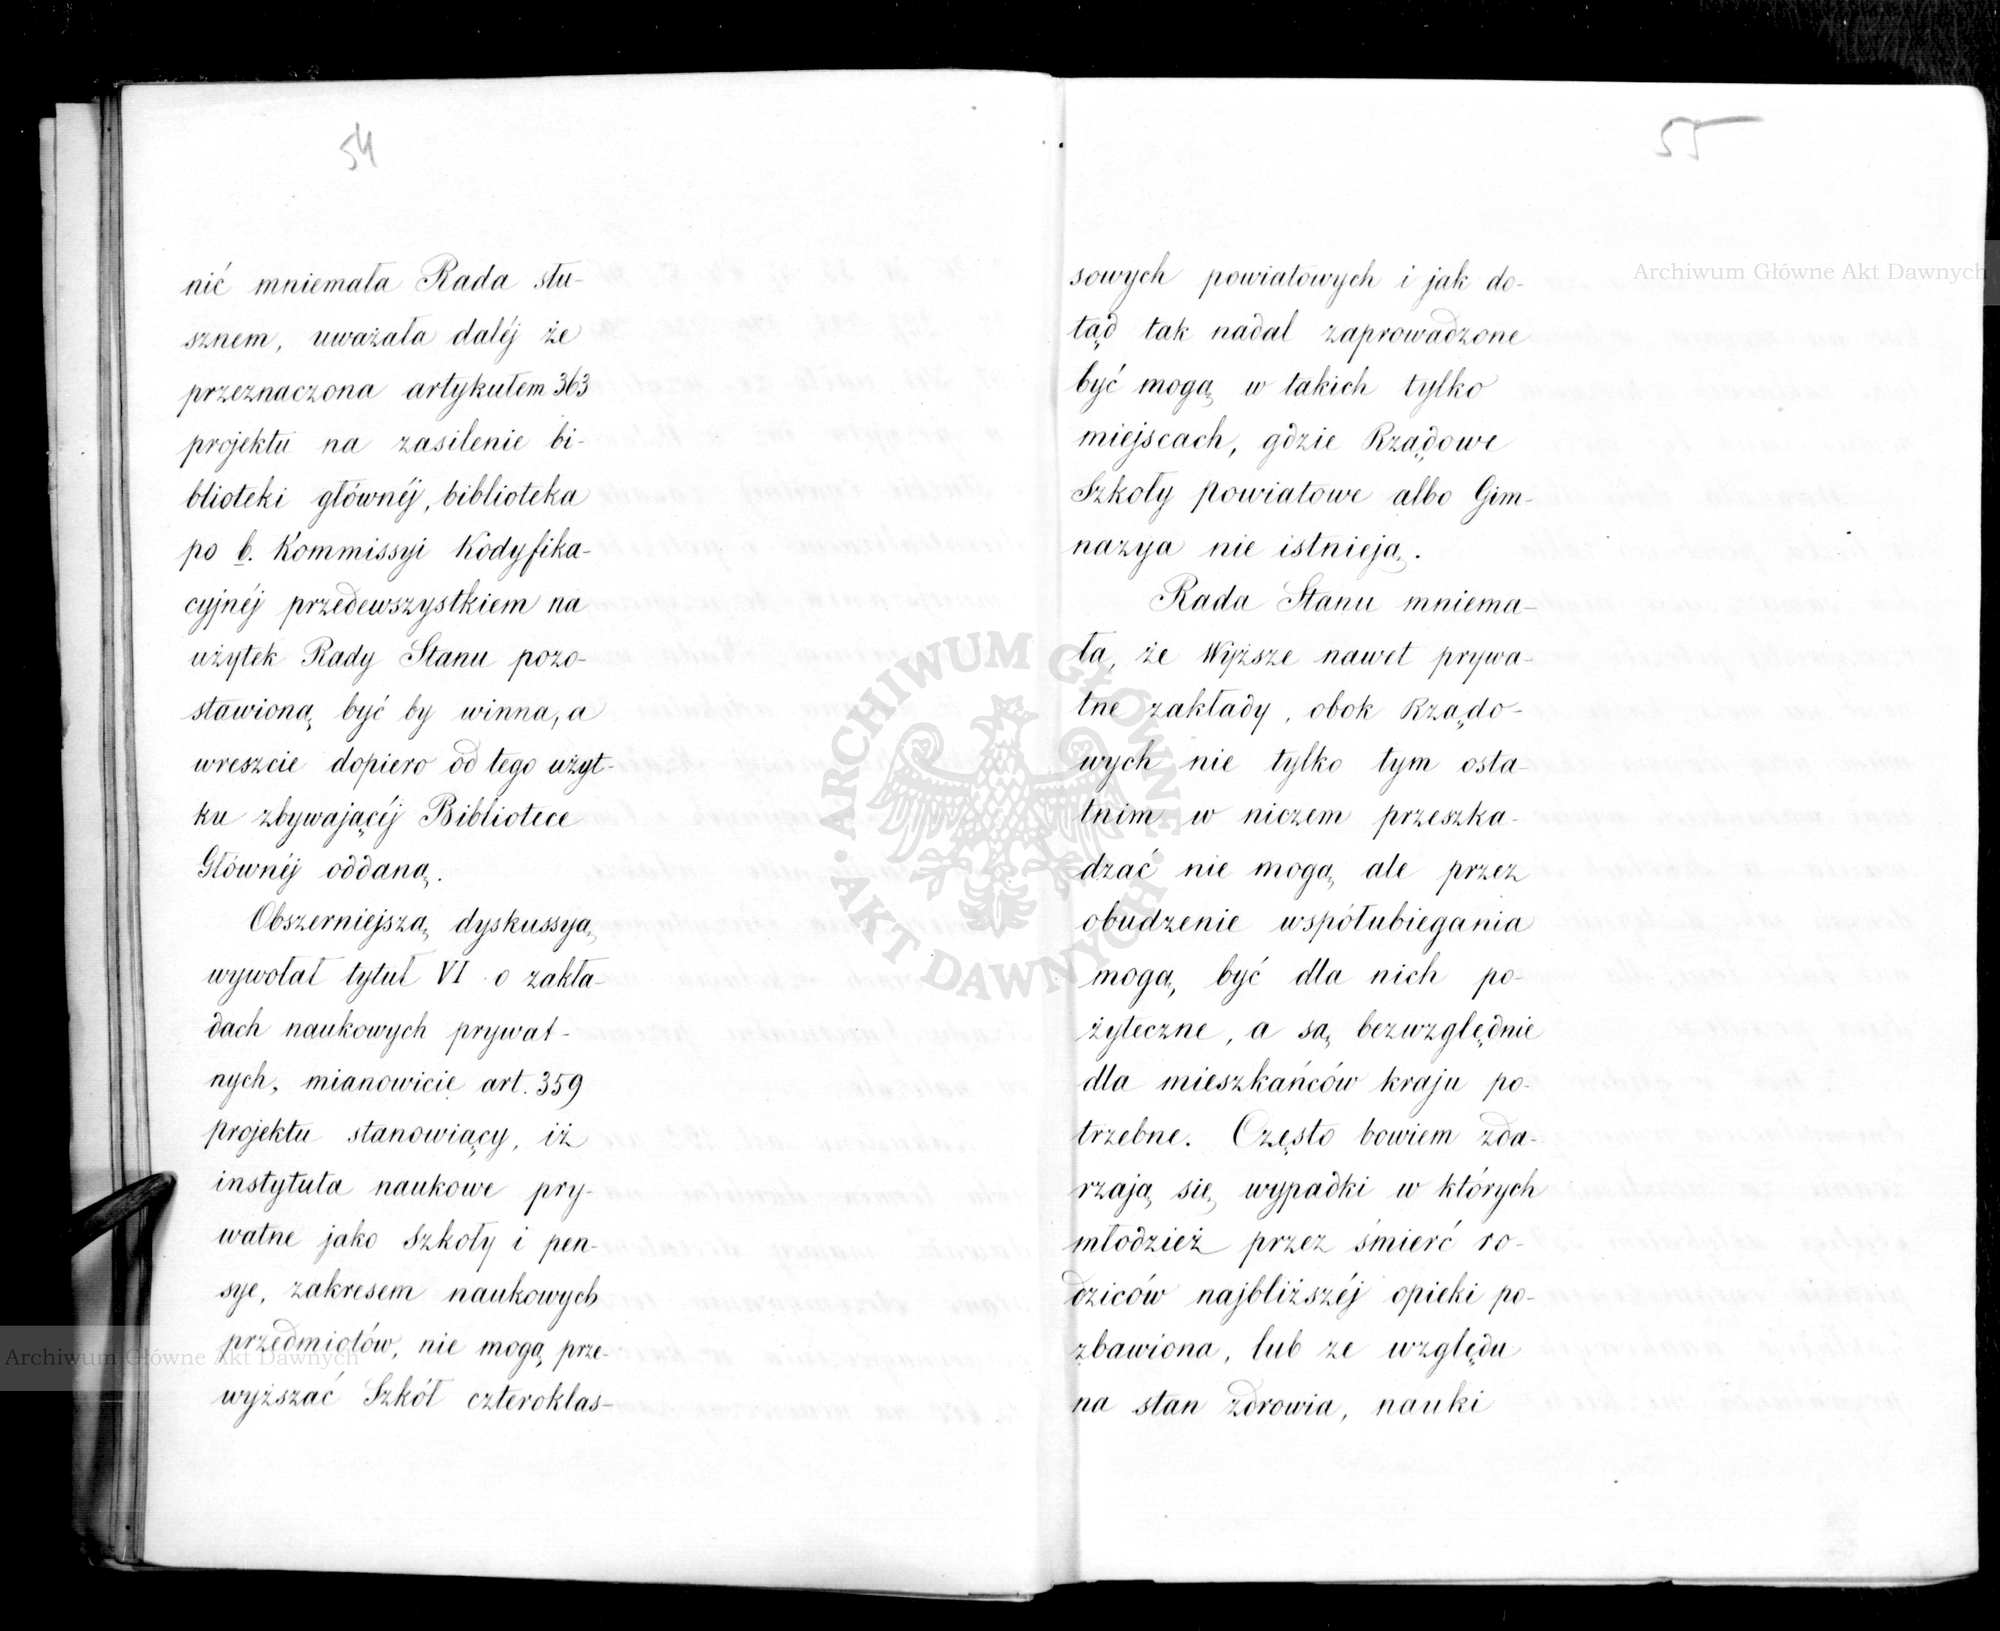 54
nić mniemała Rada słu-
sznem, uważała daléj że
przeznaczona artykułem 363
projektu na zasilenie bi-
blioteki głównéj, biblioteka
po b. Kommissyi Kodyfika-
cyjnéj przedewszystkiem na
użytek Rady Stanu pozo-
stawioną być by winna, a
wreszcie dopiero od tego użyt-
ku zbywającéj Bibliotece
Głównéj oddaną.
Obszerniejszą dyskussyą
wywołał tytuł VI o zakła-
dach naukowych prywat-
nych, mianowicie art. 359
projektu stanowiący, iż
instytuta naukowe pry-
watne jako Szkoły i pen-
sye, zakresem naukowych
przedmiotów, nie mogą prze-
wyższać Szkół czteroklas-
55
sowych powiatowych i jak do-
tąd tak nadal zaprowadzone
być mogą w takich tylko
miejscach, gdzie Rządowe
Szkoły powiatowe albo Gim-
nazya nie istnieją.
Rada Stanu mniema-
ła, że Wyższe nawet prywa-
tne zakłady, obok Rządo-
wych nie tylko tym osta-
tnim w niczem przeszka-
dzać nie mogą ale przez
obudzenie współubiegania
mogą być dla nich po-
żyteczne, a są bezwzględnie
dla mieszkańców kraju po-
trzebne. Często bowiem zda-
rzają się wypadki w których
młodzież przez śmierć ro-
dziców najbliższéj opieki po-
zbawiona, lub ze względu
na stan zdrowia, nauki
Archiwum Główne Akt Dawnych
Archiwum Główne Akt Dawnych
ARCHIWUM GŁÓWNE
AKT DAWNYCH